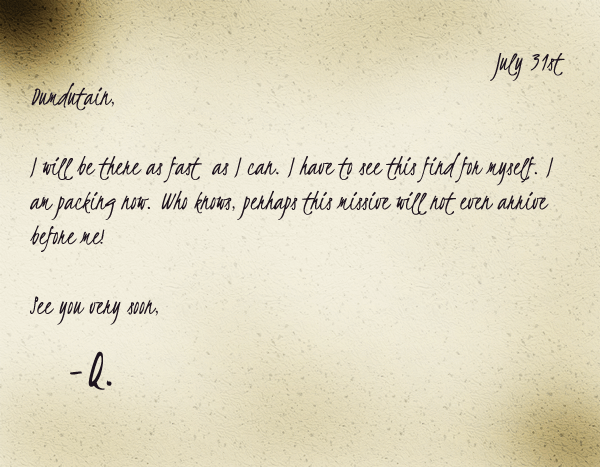 July 31st
Dumdutain,
I will be there as fast as I can. I have to see this find for myself. I
am packing now. Who knows, perhaps this missive will not even arrive
before me!
See you very soon,
-Q.